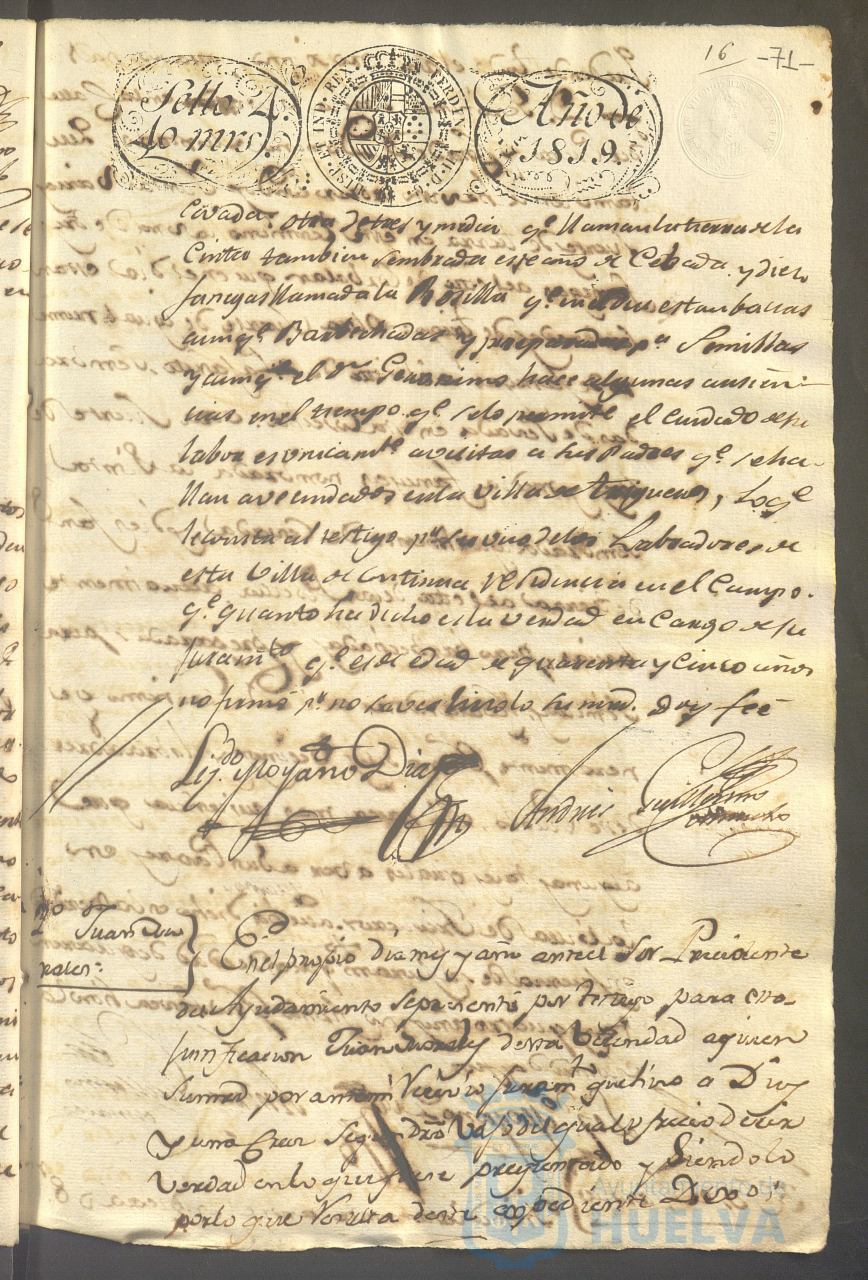 16 -71-
Sello 4.
40 mrs.
HISP. ET IND. REX FERDIN. VII. D. G.
Año de
1819.
Cevada: otra de tres y media qe. llaman la tierra de la
Cinta tambien sembrada este año de Cebada, y diez
fanegas llamada la Rosilla qe. en el dia estan bacias
aunqe. Barbechadas y preparadas pa. Semillas
y aunqe. el Dn. Geronimo hace algunas ausen-
cias en el tiempo qe. se lo permite el cuidado de su
labor es unicamte. a visitar a sus Padres qe. se ha-
llan avecindados en la villa de Trigueros, lo qe.
le consta al testigo pr. ser uno de los Labradores de
esta Villa de continua residencia en el Campo.
qe. quanto ha dicho es la verdad en Cargo de su
juramto. qe. es de edad de quarenta y cinco años
no firmó pr. no saver hizolo su mrd. doy feé
Lizdo. Moyano Diaz
Andres Guillermo
Juan Mo
rales
En el propio dia mes y año ante el Sor. Precidente
del Ayuntamiento se presentó por testigo para esta
justificacion Juan Morales de esta Vecindad a quien
su mrd por ante mi recivio juramto. que hizo a Dios
y una Cruz segun dro. vajo del qual ofrecio decir
verdad en lo que fuese preguntado y siendolo
por lo que resulta de este expediente Dixo:
Ayuntamiento de
HUELVA